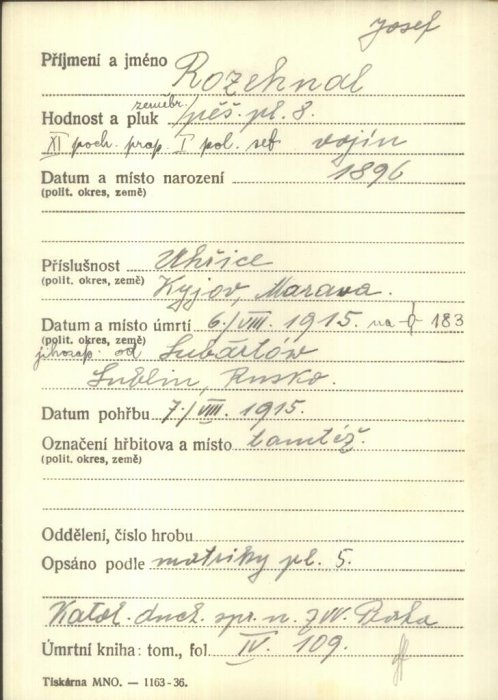 Josef
Příjmení a jméno Rozehnal
zeměbr.
Hodnost a pluk pěš. pl. 8.
XI poch. prap. I pol. set vojín
Datum a místo narození 1896
(polit. okres, země)
Příslušnost Uhřice
(polit. okres, země) Kyjov, Marava.
Datum a místo úmrtí 6./VIII. 1915. na 183
jihozap. od Lubartów
Lublin, Rusko.
Datum pohřbu 7./VIII. 1915.
Označení hřbitova a místo tamtéž.
(polit. okres, země)
Oddělení, číslo hrobu
Opsáno podle matriky pl. 5.
Katol. duch. spr. n. zvl.
Úmrtní kniha: tom., fol. IV. 109.
Tiskárna MNO. — 1163-36.